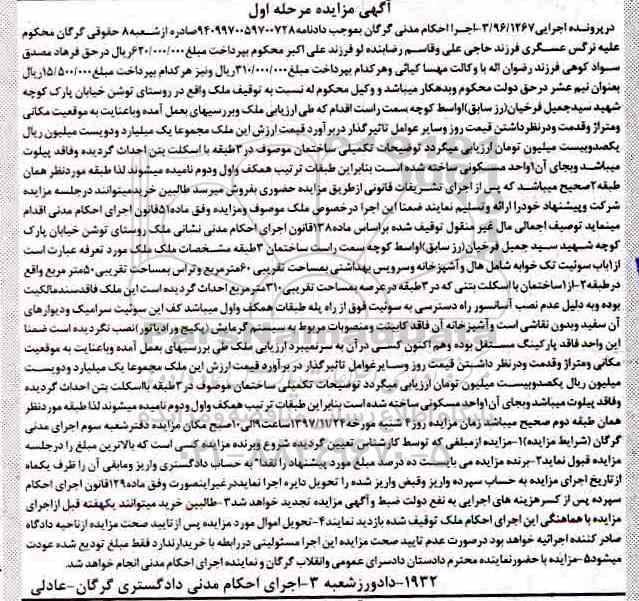 آگهی مزایده مرحله اول
درپرونده اجرایی۳/۹۶/۱۲۶۷-اجرا احکام مدنی گرگان بموجب دادنامه۹۴۰۹۹۷۰۰۵۹۷۰۰۷۲۸صادره ازشعبه۸ حقوقی گرگان محکوم
علیه نرگس عسگری فرزند حاجی علی وقاسم رضابنده لو فرزند علی اکبر محکوم بپرداخت مبلغ۶۲۰/۰۰۰/۰۰۰ریال درحق فرهاد مصدق
سواد کوهی فرزند رضوان اله با وکالت مهسا کیائی وهرکدام بپرداخت مبلغ۳۱۰/۰۰۰/۰۰۰ریال ونیز هرکدام بپرداخت مبلغ۱۵/۵۰۰/۰۰۰ریال
بعنوان نیم عشر درحق دولت محکوم وبدهکار میباشد و وکیل محکوم له نسبت به توقیف ملک واقع در روستای توشن خیابان پارک کوچه
شهید سیدجمیل فرخیان(رز سابق)اواسط کوچه سمت راست اقدام که طی ارزیابی ملک وبررسیهای بعمل آمده وباعنایت به موقعیت مکانی
ومتراژ وقدمت ودرنظرداشتن قیمت روز وسایر عوامل تاثیرگذار دربرآورد قیمت ارزش این ملک مجموعا یک میلیارد ودویست میلیون ریال
یکصدوبیست میلیون تومان ارزیابی میگردد توضیحات تکمیلی ساختمان موصوف در۳طبقه با اسکلت بتن احداث گردیده وفاقد پیلوت
میباشد وبجای آن۱واحد مسکونی ساخته شده است بنابراین طبقات ترتیب همکف واول ودوم نامیده میشوند لذا طبقه موردنظر همان
طبقه۲صحیح میباشد که پس از اجرای تشریفات قانونی ازطریق مزایده حضوری بفروش میرسد طالبین خریدمیتوانند درجلسه مزایده
شرکت وپیشنهاد خودرا ارائه وتسلیم نمایند ضمنا این اجرا درخصوص ملک موصوف ومزایده وفق ماده۵۱قانون اجرای احکام مدنی اقدام
مینماید توصیف اجمالی مال غیر منقول توقیف شده براساس ماده۱۳۸قانون اجرای احکام مدنی نشانی ملک روستای توشن خیابان پارک
کوچه شهید سید جمیل فرخیان(رز سابق)اواسط کوچه سمت راست ساختمان ۳طبقه مشخصات ملک ملک مورد تعرفه عبارت است
از۱باب سوئیت تک خوابه شامل هال وآشپزخانه وسرویس بهداشتی بمساحت تقریبی ۶۰مترمربع وتراس بمساحت تقریبی ۵۰متر مربع واقع
درطبقه۲-از۱ساختمان با اسکلت بتنی که در۳طبقه درعرصه بمساحت تقریبی۳۱۰مترمربع احداث گردیده است این ملک فاقدسندمالکیت
بوده وبه دلیل عدم نصب آسانسور راه دسترسی به سوئیت فوق از راه پله طبقات همکف واول میباشد کف این سوئیت سرامیک ودیوارهای
آن سفید وبدون نقاشی است وآشپزخانه آن فاقد کابینت ومنصوبات مربوط به سیستم گرمایش (پکیج ورادیاتور)نصب نگردیده است ضمنا
این واحد فاقد پارکینگ مستقل بوده وهم اکنون کسی درآن به سرنمیبرد ارزیابی ملک طی بررسیهای بعمل آمده وباعنایت به موقعیت
مکانی ومتراژ وقدمت ودرنظر داشتن قیمت روز وسایرعوامل تاثیرگذار در برآورد قیمت ارزش این ملک مجموعا یک میلیارد ودویست
میلیون ریال یکصدوبیست میلیون تومان ارزیابی میگردد توضیحات تکمیلی ساختمان موصوف در۳طبقه بااسکلت بتن احداث گردیده
وفاقد پیلوت میباشد وبجای آن۱واحد مسکونی ساخته شده است بنابراین طبقات ترتیب همکف واول ودوم نامیده میشوند لذا طبقه موردنظر
همان طبقه دوم صحیح میباشد زمان مزایده روز۲ شنبه مورخه۱۳۹۷/۱۱/۲۲ساعت۹الی۱۰صبح مکان مزایده دفترشعبه سوم اجرای مدنی
گرگان (شرایط مزایده)۱-مزایده ازمبلغی که توسط کارشناس تعیین گردیده شروع وبرنده مزایده کسی است که بالاترین مبلغ را درجلسه
مزایده قبول نماید۲-برنده مزایده می بایست ده درصد مبلغ مورد پیشنهاد را"نقدا" به حساب دادگستری واریز ومابقی آن را ظرف یکماه
ازتاریخ اجرای مزایده به حساب سپرده واریز وقبض واریز شده را تحویل دایره اجرا نمایددرغیراینصورت وفق ماده۱۲۹قانون اجرای احکام
سپرده پس از کسرهزینه های اجرایی به نفع دولت ضبط و آگهی مزایده تجدید خواهد شد۳-طالبین خرید میتوانند یکهفته قبل ازاجرای
مزایده با هماهنگی این اجرای احکام ملک توقیف شده بازدید نمایند۴-تحویل اموال مورد مزایده پس از تایید صحت مزایده ازناحیه دادگاه
صادر کننده اجرائیه خواهد بود درصورت عدم تایید صحت مزایده این اجرا مسئولیتی دررابطه با خریدارندارد فقط مبلغ تودیع شده عودت
میشود۵-مزایده با حضورنماینده محترم دادستان دادسرای عمومی وانقلاب گرگان و نماینده اجرای احکام مدنی انجام خواهد شد.
۱۹۳۲-دادورزشعبه ۳-اجرای احکام مدنی دادگستری گرگان-عادلی